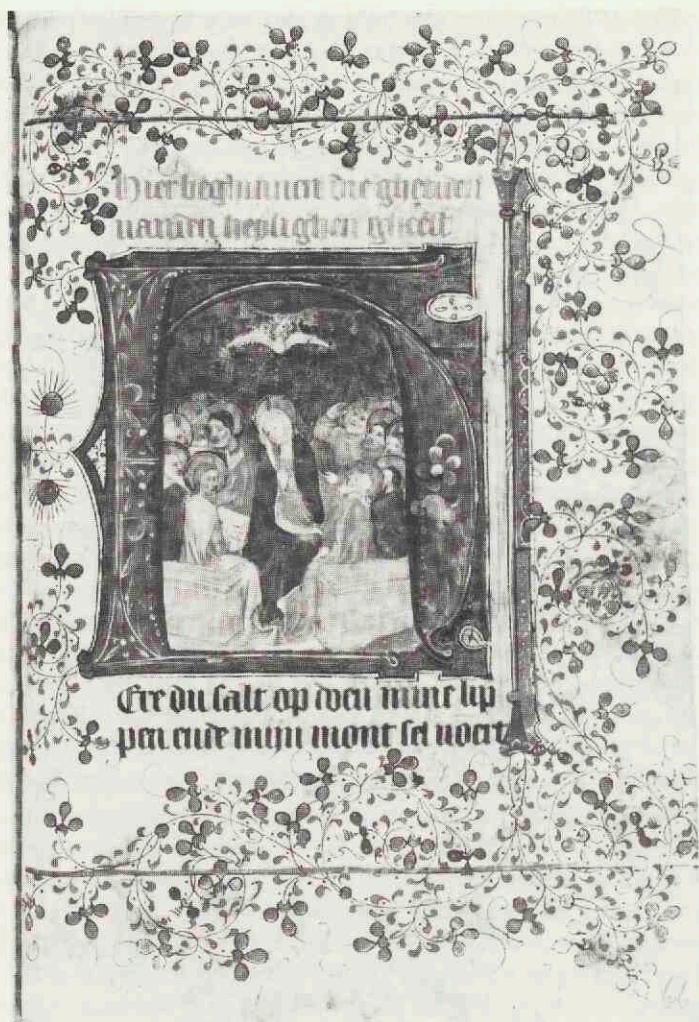 Hier beghinnen die ghetiden
vanden heylighen gheest
Ere du salt op doen mine lip
pen ende mijn mont sel voert
66